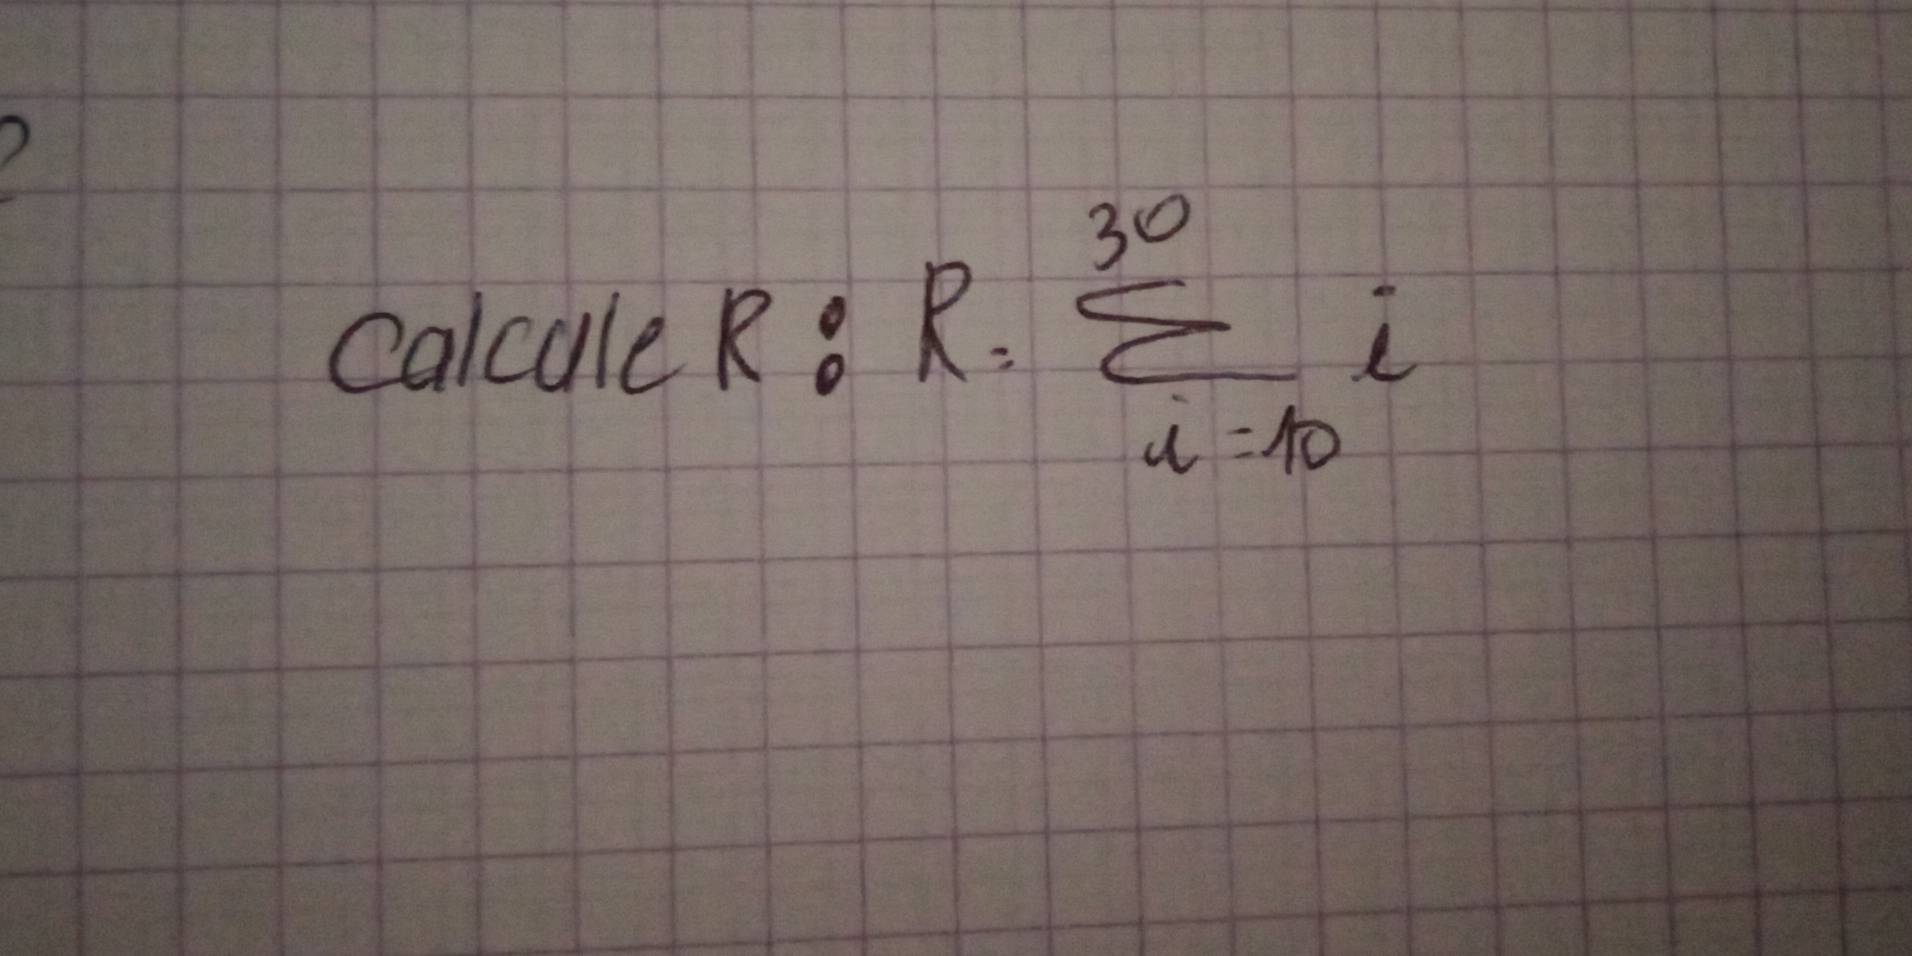 calcule R : R = \sum_{i=10}^{30} i